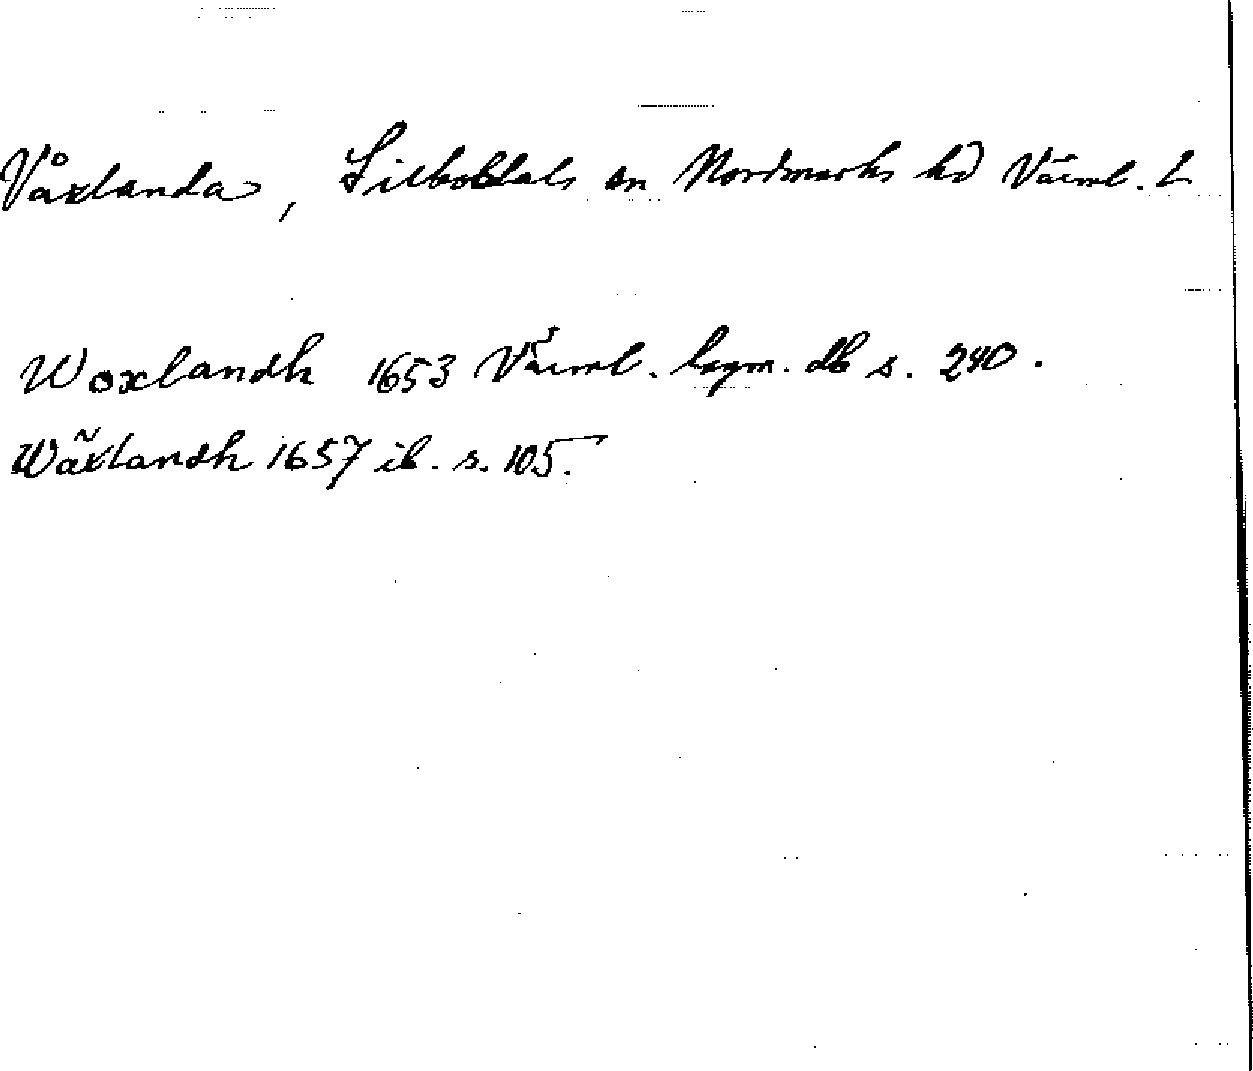 Våxlanda, Silbodals sn Nordmarks hd Värml. L
Woxlandh 1653 Värml. lagm. db s. 240.
Wäxlandh 1657 ib. s. 105.